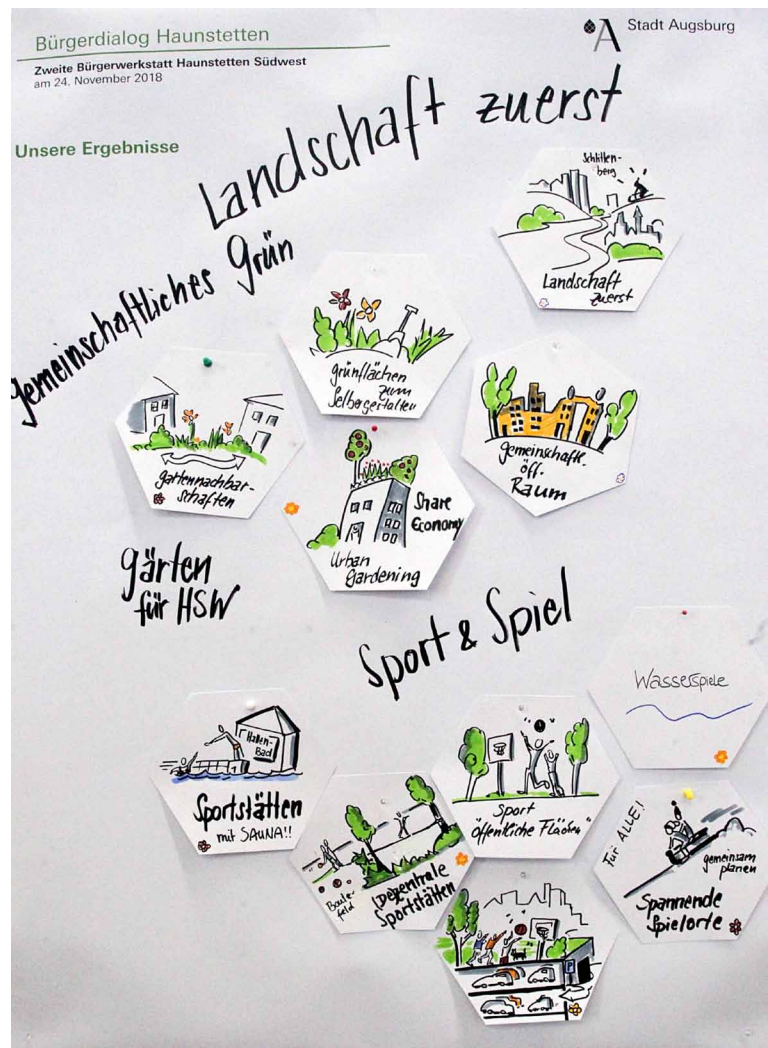 Bürgerdialog Haunstetten
Stadt Augsburg
Zweite Bürgerwerkstatt Haunstetten Südwest
am 24. November 2018
Unsere Ergebnisse
Landschaft zuerst
Schlitten-
berg
Landschaft
zuerst
gemeinschaftliches Grün
grünflächen
zum
Selbergestalten
gartennachbar-
schaften
gemeinschaftl.
öff.
Raum
Share
Economy
Urban
Gardening
gärten
für HSW
Sport & Spiel
Wasserspiele
Hallen-
Bad
Sportstätten
mit SAUNA!!
Sport
"öffentliche Flächen"
Boule-
feld
Dezentrale
Sportstätten
Für ALLE!
gemeinsam
planen
Spannende
Spielorte
P